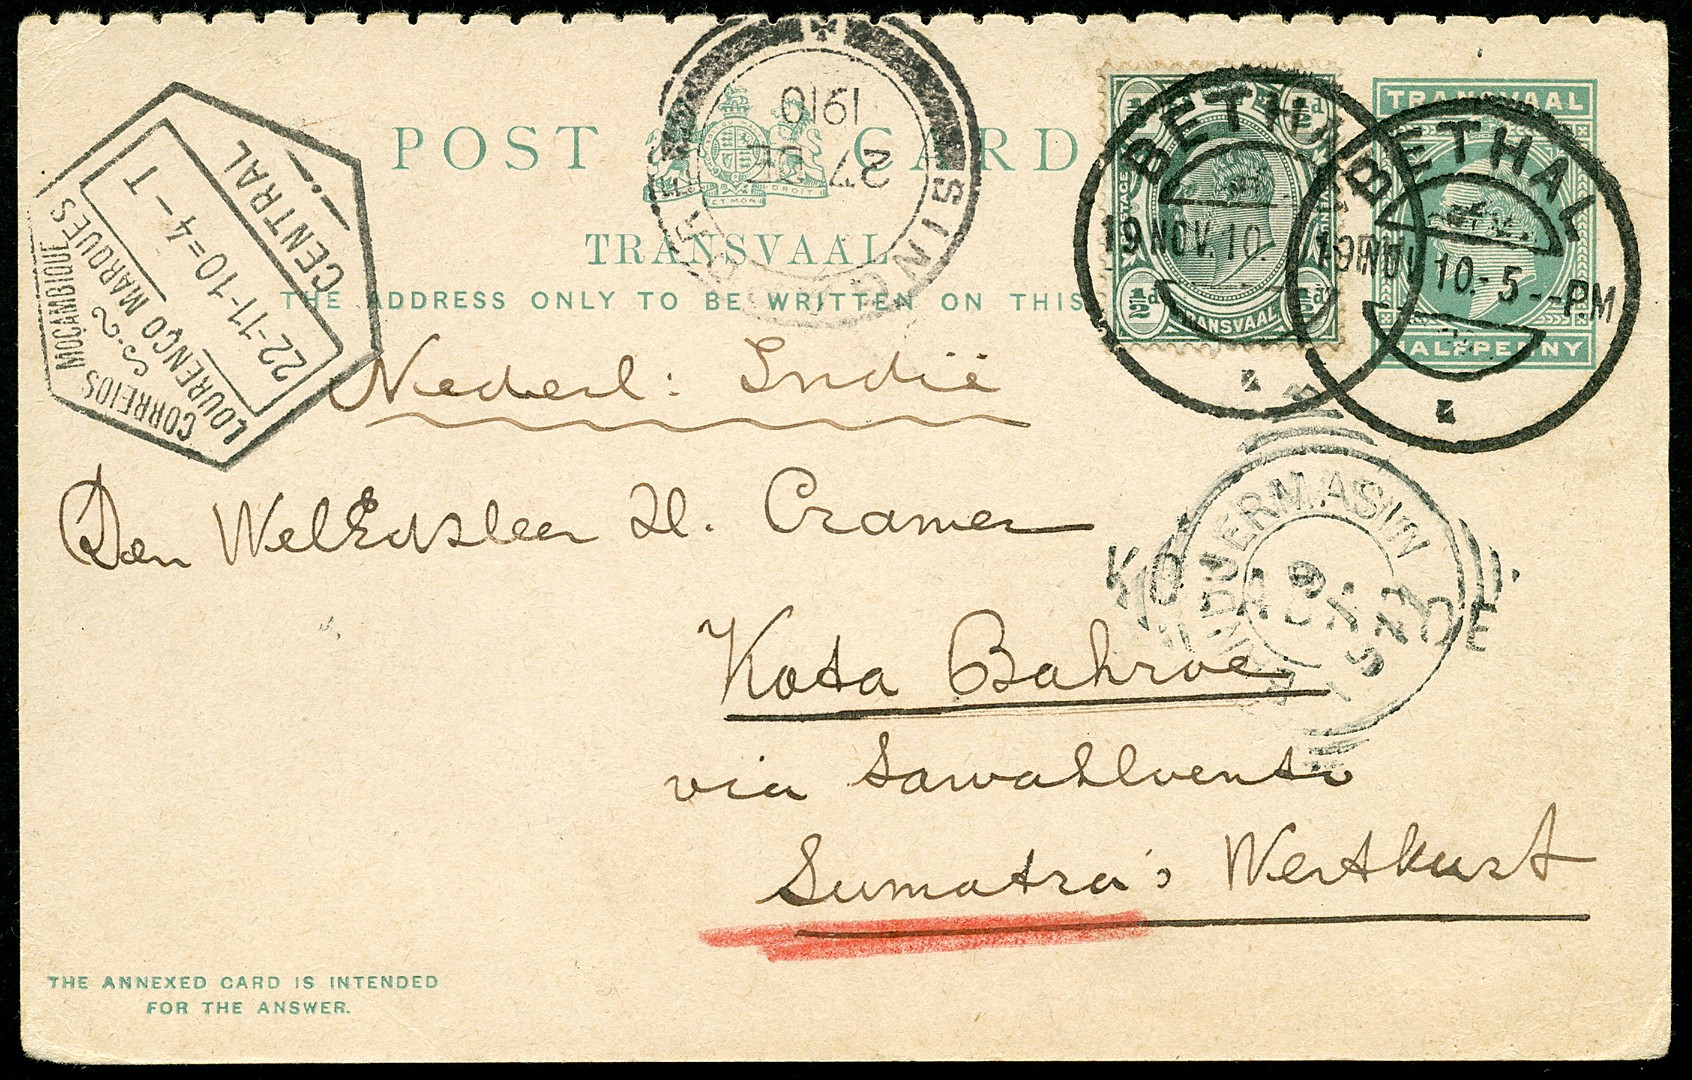 POST CARD
TRANSVAAL.
THE ADDRESS ONLY TO BE WRITTEN ON THIS
CORREIOS MOÇAMBIQUE
S-2
LOURENÇO MARQUES
22-11-10=4-T
CENTRAL
1910
27
SING
½d ½d
POSTAGE
½d ½d
TRANSVAAL
TRANSVAAL
HALFPENNY
BETHAL
19 NOV. 10.
BETHAL
19 NOV 10.-5--PM
Nederl: Indië
Den WelEdslen H. Cramer
Kota Bahroe
via Sawahloento
Sumatra's Westkust
BANDJERMASIN
THE ANNEXED CARD IS INTENDED
FOR THE ANSWER.